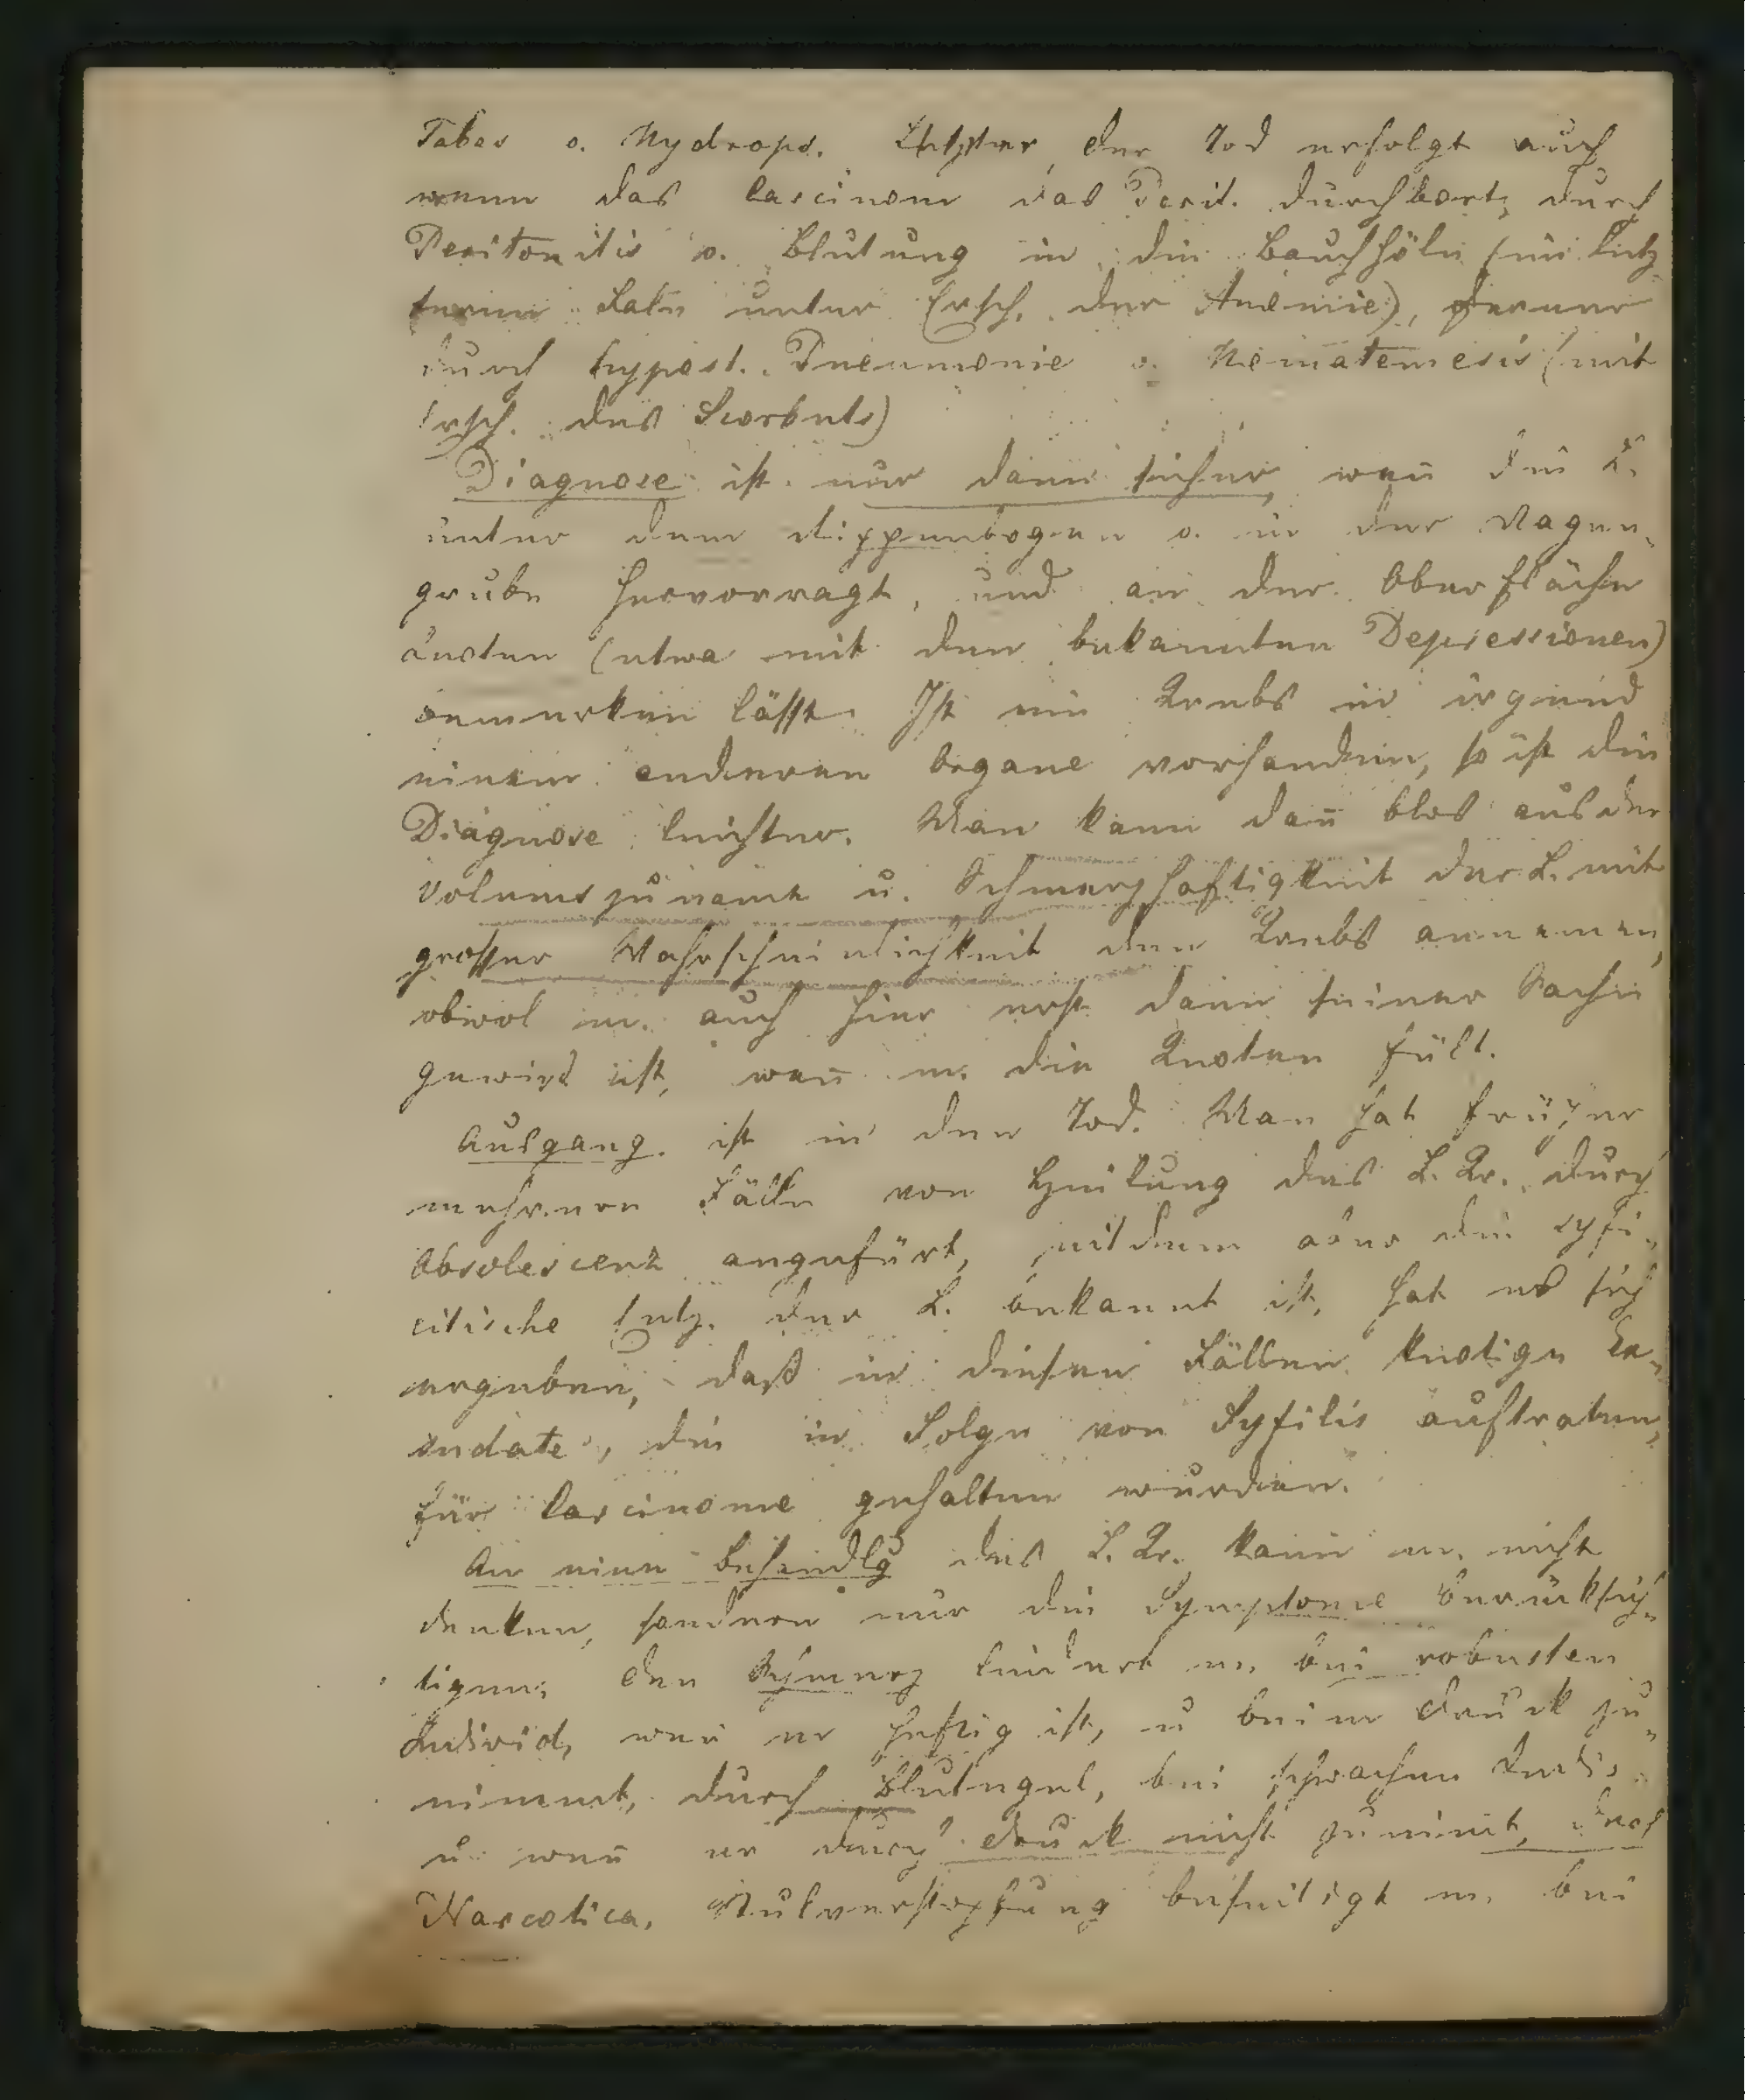 Tabes o. Hydrops. der Tod erfolgt auch
wenn das Carcinom das Perit. durchbort, durch
Peritonitis o. Blutung in die Bauchhöle (im letz-
terem Falle unter Ersch. der Anemie), ferner
durch hypost. Pneumonie o. Hematemesis (mit
Ersch. des Scorbuts)
Diagnose ist nur dann sicher, wen̄ die L.
unter dem Rippenbogen o. in der Magen-
grube hervorragt, und an der Oberfläche
Knoten (etwa mit den bekannten Depressionen)
bemerken läſſt. Ist ein Krebs in irgend
einem anderen Organe vorhanden, so ist die
Diagnose leichter. Man kann dan̄ blos aus der
Volumszuname u. Schmerzhaftigkeit der L. mit
groſſer Wahrscheinlichkeit den Krebs annemen,
obwol m. auch hier erst dann seiner Sache
gewiss ist, wen̄ m. die Knoten fült.
Ausgang. ist in den Tod. Man hat früher
mehrere Fälle von Heilung des L. Kr. durch
Obsolescenz angefürt, seitdem aber die syfi-
litische Entz. der L. bekannt ist, hat es sich
ergeben, daß in diesen Fällen knotige Ex-
sudate, die in Folge von Syfilis auftraten,
für Carcinome gehalten wurden.
An eine Behandlg des L. Kr. kann m. nicht
denken, sondern nur die Symptome berücksich-
tigen; den Schmerz lindert m. bei robusten
Individ, wen̄ er heftig ist, u beim Druck zu-
nimmt, durch Blutegel, bei schwachen Indiv.
u wen̄ er durch Druck nicht zunimt, durch
Narcotica. Stulverstopfung beseitigt m. bei